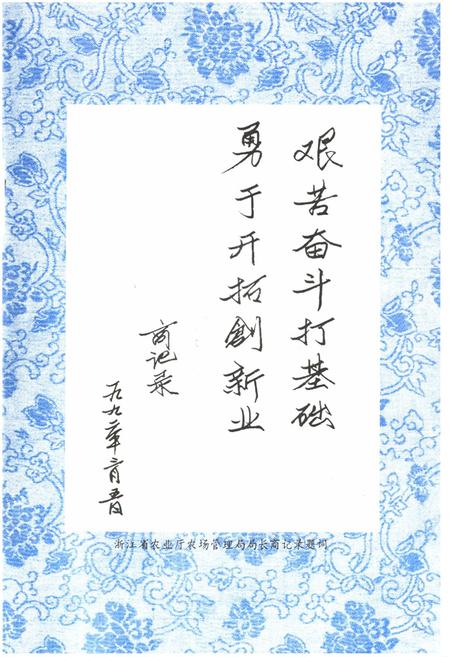 艰苦奋斗打基础
勇于开拓創新业
商记录
浙江省农业厅农场管理局局长商记录题词